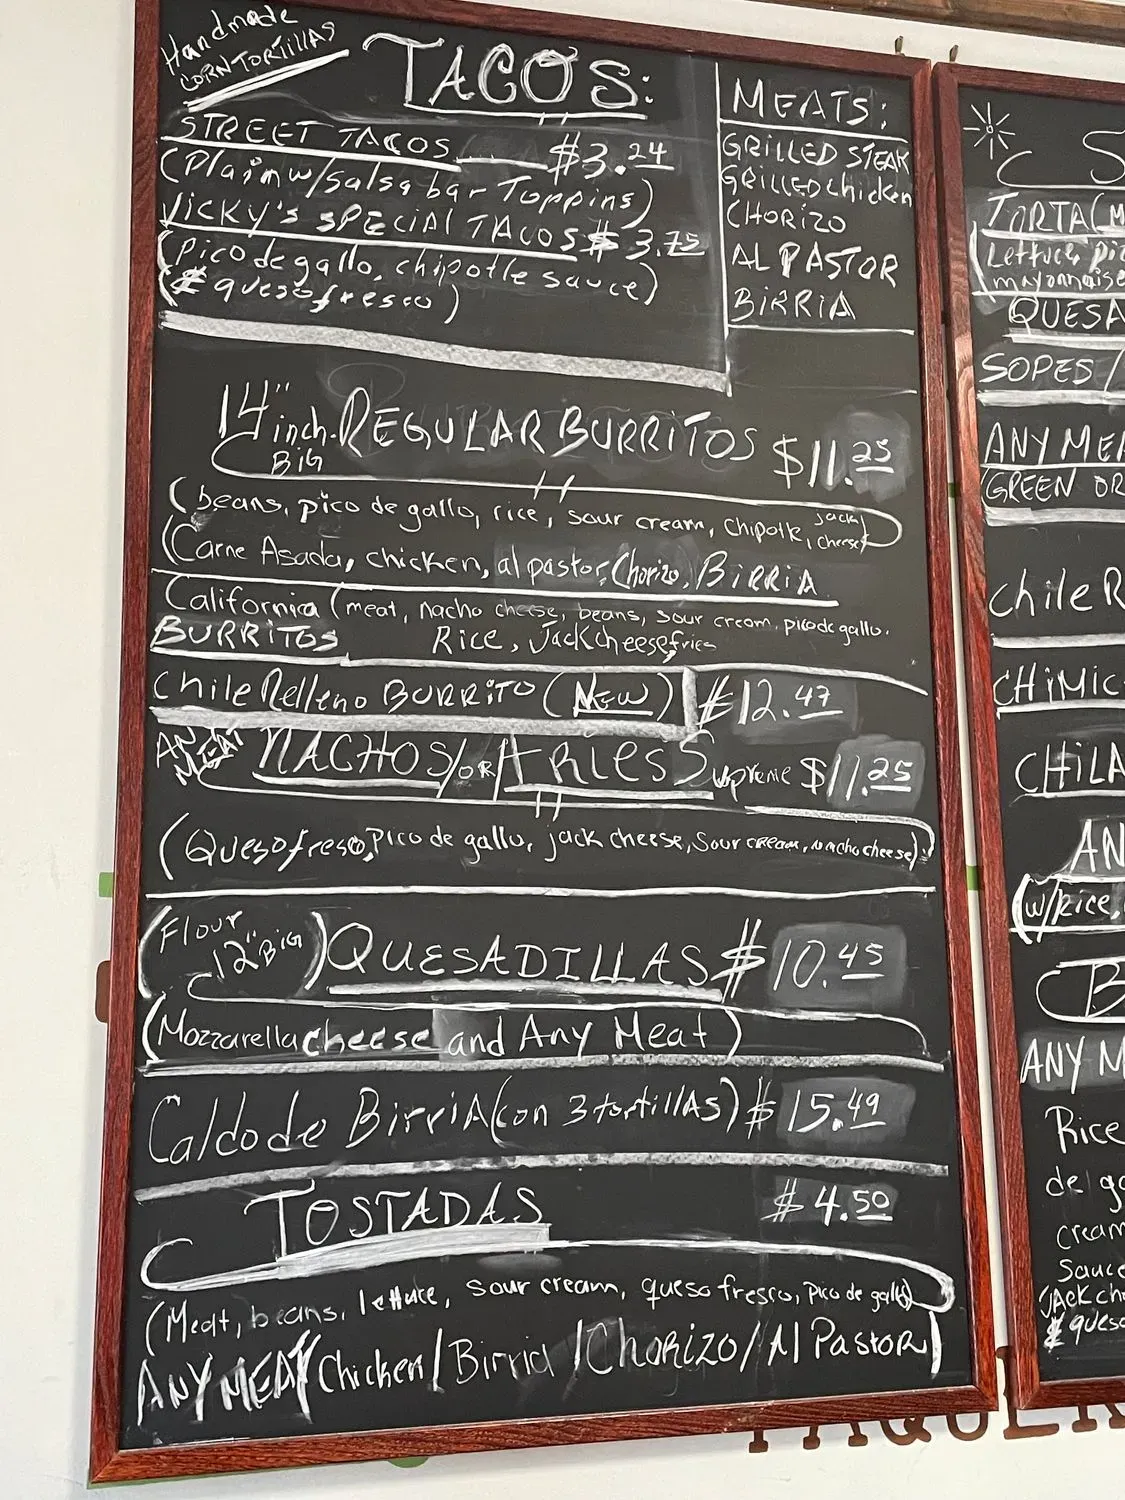 Handmade
CORN TORTILLAS
TACOS:
STREET TACOS $3.24
(Plain w/salsa bar Toppins)
Vicky's SPECIAL TACOS $ 3.75
(Pico de gallo, chipotle sauce)
(& queso fresco)
MEATS:
GRILLED STEAK
GRILLED chicken
CHORIZO
AL PASTOR
BIRRIA
14" inch. REGULAR BURRITOS $11.25
BIG
(beans, pico de gallo, rice, sour cream, chipotle, jack cheese)
(Carne Asada, chicken, al pastor, Chorizo, BIRRIA
California (meat, nacho cheese, beans, sour cream, pico de gallo.
BURRITOS Rice, Jack cheese, fries
Chile Relleno BURRITO (NEW) $12.47
ANY MEAT NACHOS/OR/FRIES Supreme $11.25
(Queso freso, Pico de gallo, jack cheese, Sour cream, nacho cheese)
(Flour 12" BIG) QUESADILLAS $10.45
(Mozzarella cheese and Any Meat)
Caldo de BirriA (con 3 tortillAs) $15.49
TOSTADAS $4.50
(Meat, beans, lettuce, sour cream, queso fresco, pico de gallo)
ANY MEAT Chicken/Birria/Chorizo/Al Pastor)
S
TORTA (M
(Lettuce, pi
mayonnaise
QUESA
SOPES/
ANY MEA
(GREEN OR
Chile R
CHIMIC
CHILA
AN
(w/Rice,
B
ANY M
Rice
de ga
cream
Sauce
JACK ch
& queso
TAQUER